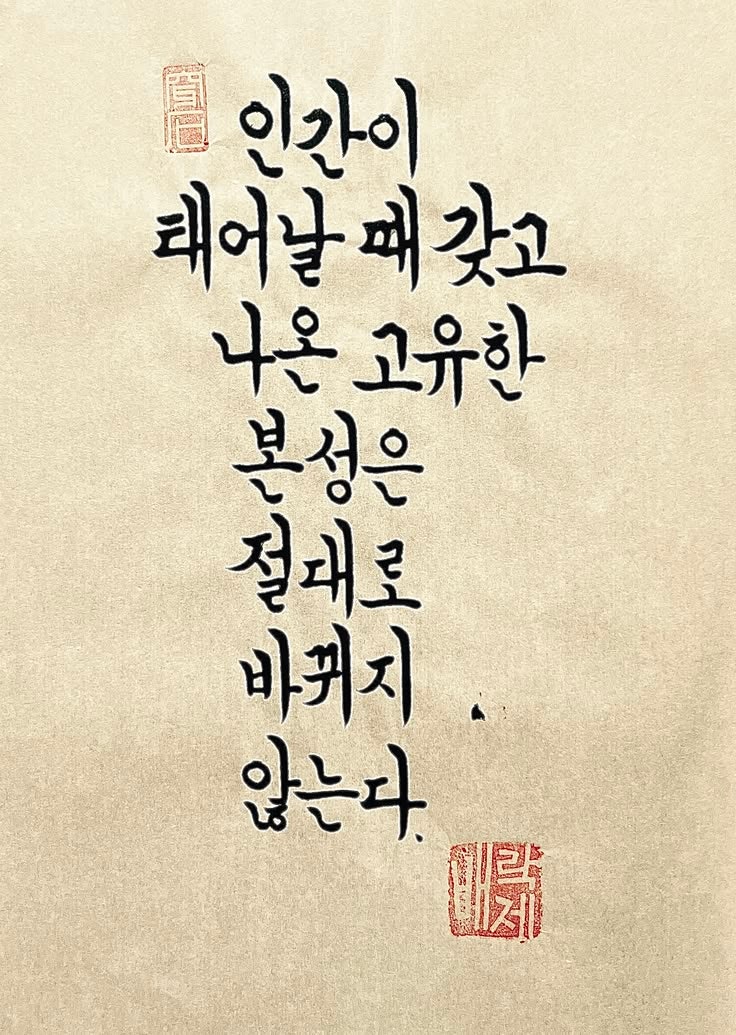 인간이
태어날 때 갖고
나온 고유한
본성은
절대로
바뀌지
않는다.
락
제